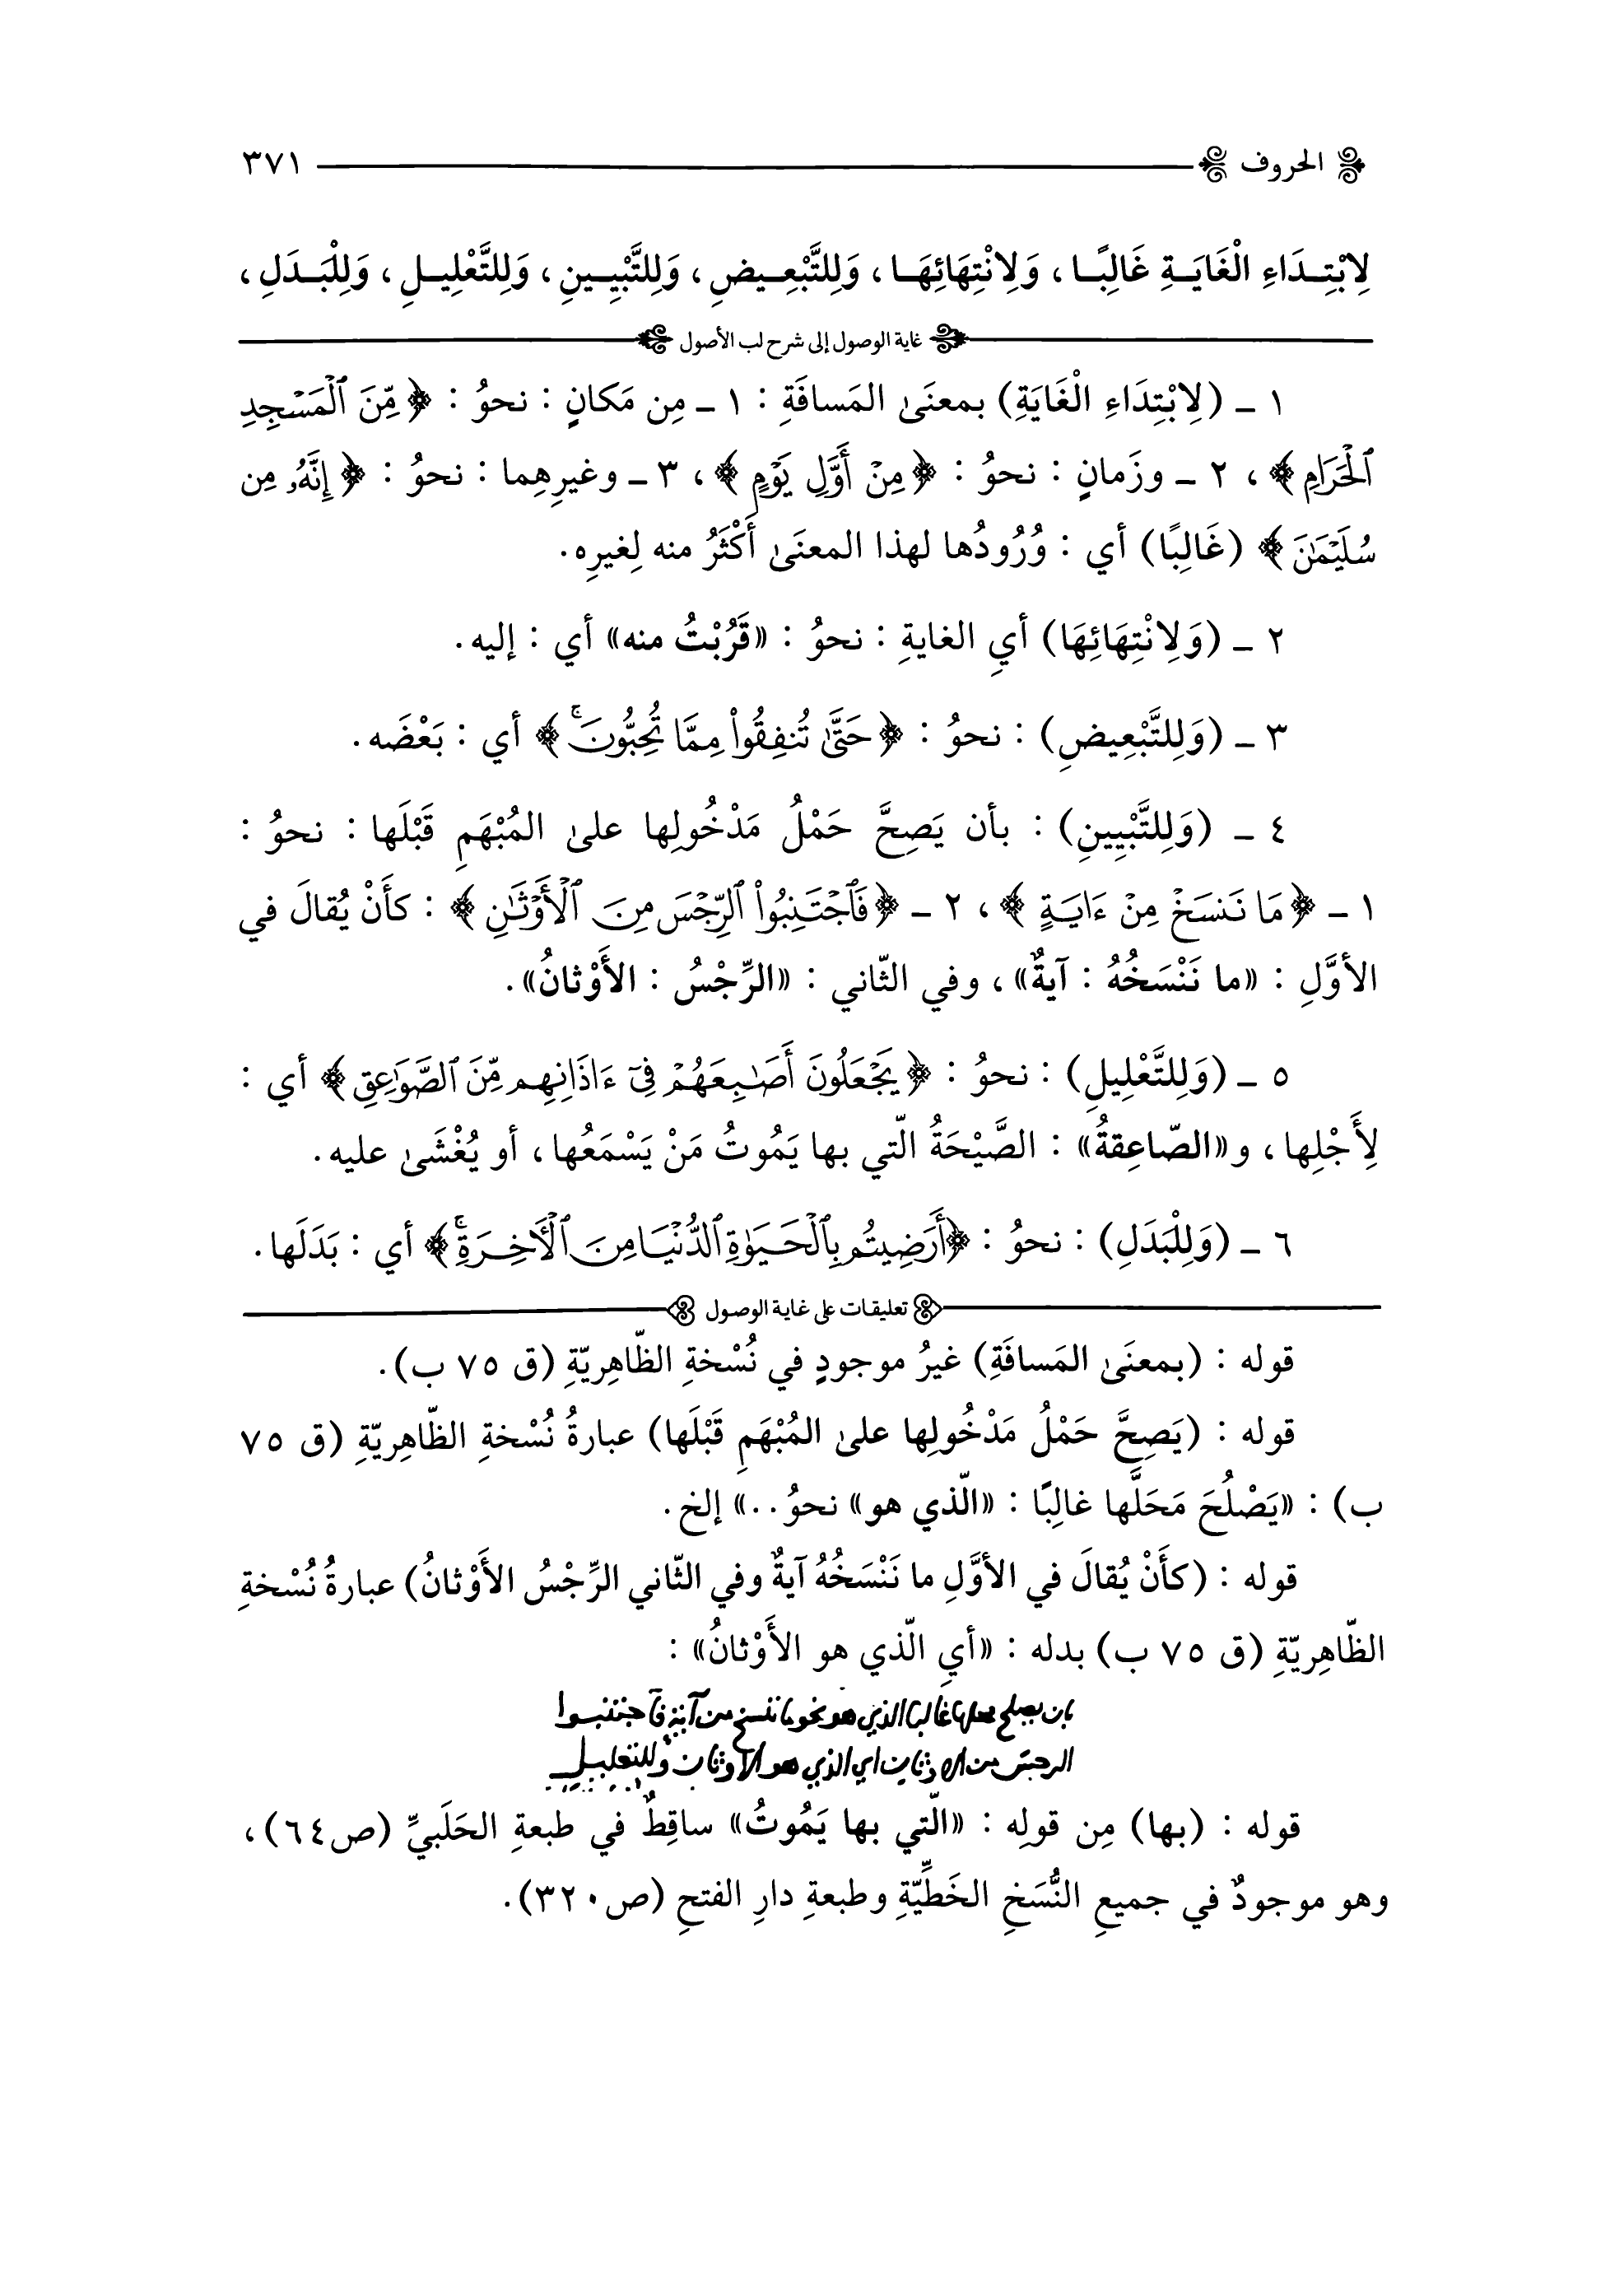 الحروف ٣٧١
لِابْتِـدَاءِ الْغَايَـةِ غَالِبًـا ، وَلِانْتِهَائِهَـا ، وَلِلتَّبْعِـيضِ ، وَلِلتَّبْيِـينِ ، وَلِلتَّعْلِيـلِ ، وَلِلْبَـدَلِ ،
غاية الوصول إلى شرح لب الأصول
١ ــ (لِابْتِدَاءِ الْغَايَةِ) بمعنَىٰ المَسافَةِ : ١ ــ مِن مَكانٍ : نحوُ : ﴿ مِّنَ ٱلْمَسْجِدِ
ٱلْحَرَامِ ﴾ ، ٢ ــ وزَمانٍ : نحوُ : ﴿ مِنْ أَوَّلِ يَوْمٍ ﴾ ، ٣ ــ وغيرِهِما : نحوُ : ﴿ إِنَّهُۥ مِن
سُلَيْمَٰنَ ﴾ (غَالِبًا) أي : وُرُودُها لهذا المعنَىٰ أَكْثَرُ منه لِغيرِه.
٢ ــ (وَلِانْتِهَائِهَا) أيِ الغايةِ : نحوُ : «قَرُبْتُ منه» أي : إليه.
٣ ــ (وَلِلتَّبْعِيضِ) : نحوُ : ﴿ حَتَّىٰ تُنفِقُوا۟ مِمَّا تُحِبُّونَ ۚ ﴾ أي : بَعْضَه.
٤ ــ (وَلِلتَّبْيِينِ) : بأن يَصِحَّ حَمْلُ مَدْخُولِها علىٰ المُبْهَمِ قَبْلَها : نحوُ :
١ ــ ﴿ مَا نَنسَخْ مِنْ ءَايَةٍ ﴾ ، ٢ ــ ﴿ فَٱجْتَنِبُوا۟ ٱلرِّجْسَ مِنَ ٱلْأَوْثَٰنِ ﴾ : كأَنْ يُقالَ في
الأوَّلِ : «ما نَنْسَخُهُ : آيةٌ» ، وفي الثّاني : «الرِّجْسُ : الأَوْثانُ».
٥ ــ (وَلِلتَّعْلِيلِ) : نحوُ : ﴿ يَجْعَلُونَ أَصَٰبِعَهُمْ فِىٓ ءَاذَانِهِم مِّنَ ٱلصَّوَٰعِقِ ﴾ أي :
لِأَجْلِها ، و«الصّاعِقةُ» : الصَّيْحَةُ الّتي بها يَمُوتُ مَنْ يَسْمَعُها ، أو يُغْشَىٰ عليه.
٦ ــ (وَلِلْبَدَلِ) : نحوُ : ﴿أَرَضِيتُم بِٱلْحَيَوٰةِ ٱلدُّنْيَا مِنَ ٱلْأَخِرَةِ ۚ ﴾ أي : بَدَلَها.
تعليقات على غاية الوصول
قوله : (بمعنَىٰ المَسافَةِ) غيرُ موجودٍ في نُسْخةِ الظّاهِريّةِ (ق ٧٥ ب).
قوله : (يَصِحَّ حَمْلُ مَدْخُولِها علىٰ المُبْهَمِ قَبْلَها) عبارةُ نُسْخةِ الظّاهِريّةِ (ق ٧٥
ب) : «يَصْلُحَ مَحَلَّها غالِبًا : «الّذي هو» نحوُ..» إلخ.
قوله : (كأَنْ يُقالَ في الأوَّلِ ما نَنْسَخُهُ آيةٌ وفي الثّاني الرِّجْسُ الأَوْثانُ) عبارةُ نُسْخةِ
الظّاهِريّةِ (ق ٧٥ ب) بدله : «أيِ الّذي هو الأَوْثانُ» :
بان يصلح محلها غالبا الذي هو نحو ما ننسخ من آية فاجتنبوا
الرجس من الاوثان اي الذي هو الاوثان وللتعليل
قوله : (بها) مِن قولِه : «الّتي بها يَمُوتُ» ساقِطٌ في طبعةِ الحَلَبيِّ (ص٦٤) ،
وهو موجودٌ في جميعِ النُّسَخِ الخَطِّيّةِ وطبعةِ دارِ الفتحِ (ص٣٢٠).